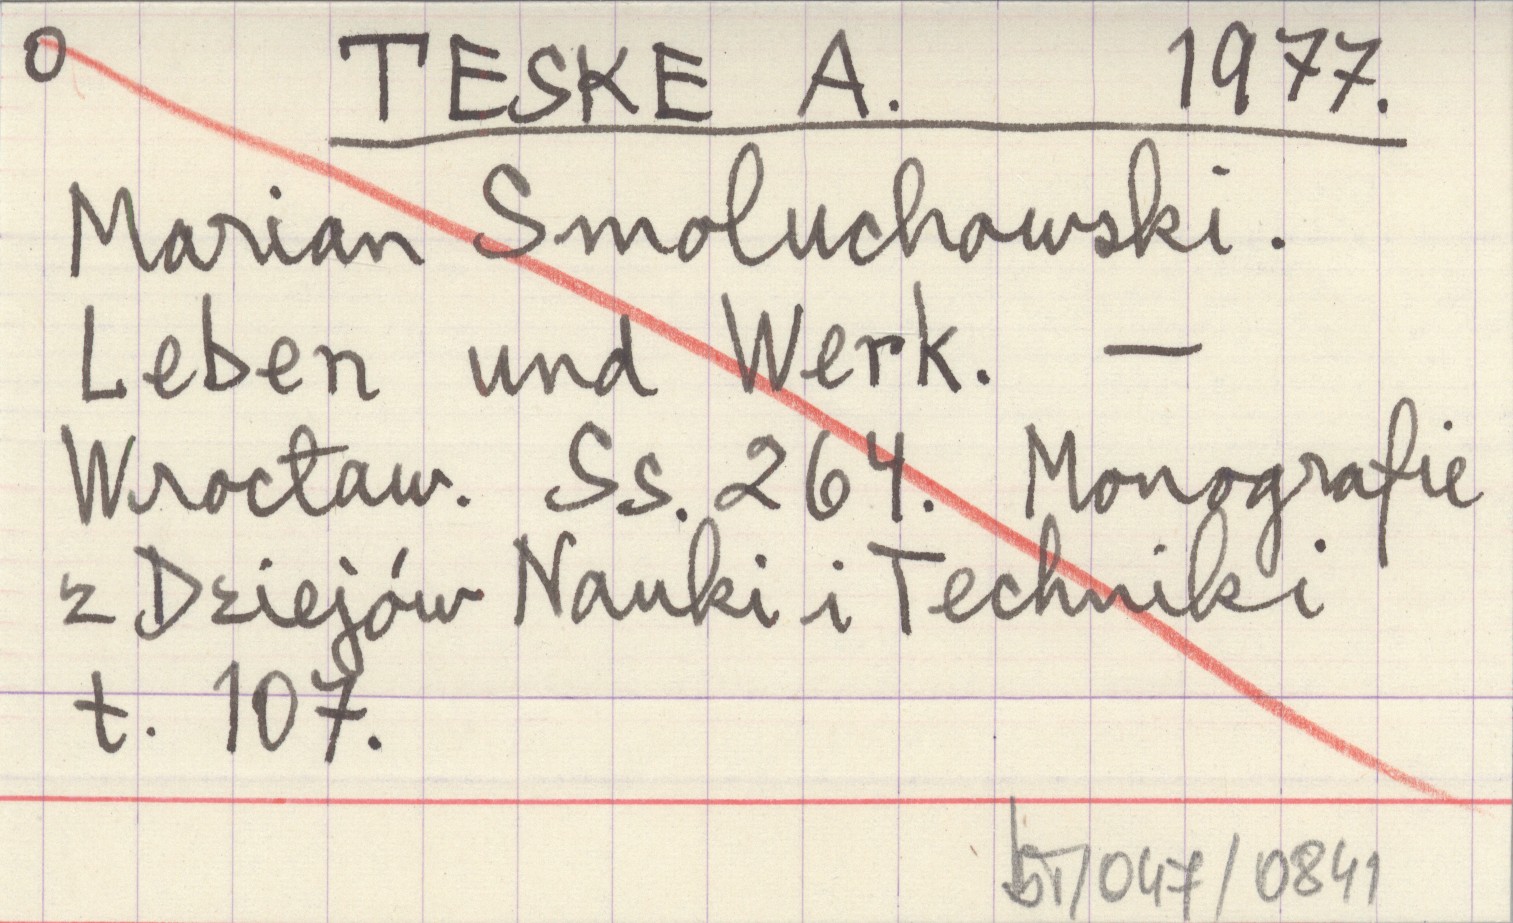 0 TESKE A. 1977.
Marian Smoluchowski.
Leben und Werk. —
Wrocław. Ss. 264. Monografie
z Dziejów Nauki i Techniki
t. 107.
/047/0841